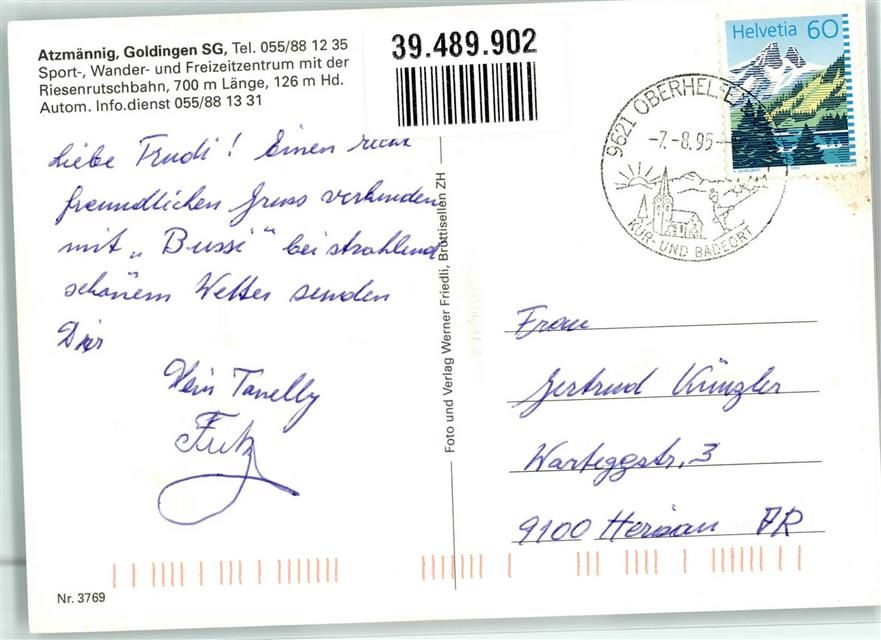 Atzmännig, Goldingen SG, Tel. 055/88 12 35
Sport-, Wander- und Freizeitzentrum mit der
Riesenrutschbahn, 700 m Länge, 126 m Hd.
Autom. Info.dienst 055/88 13 31
39.489.902
Helvetia 60
9621 OBERHELFE
-7.-8.95-
KUR- UND BADEORT
Liebe Trudi! Einen recht
freundlichen Gruss verbunden
mit „Bussi" bei strahlend
schönem Wetter senden
Dir
Dein
Fritz
Foto und Verlag Werner Friedli, Brüttisellen ZH
Frau
Gertrud Künzler
Warteggstr. 3
9100 Herisau AR
Nr. 3769